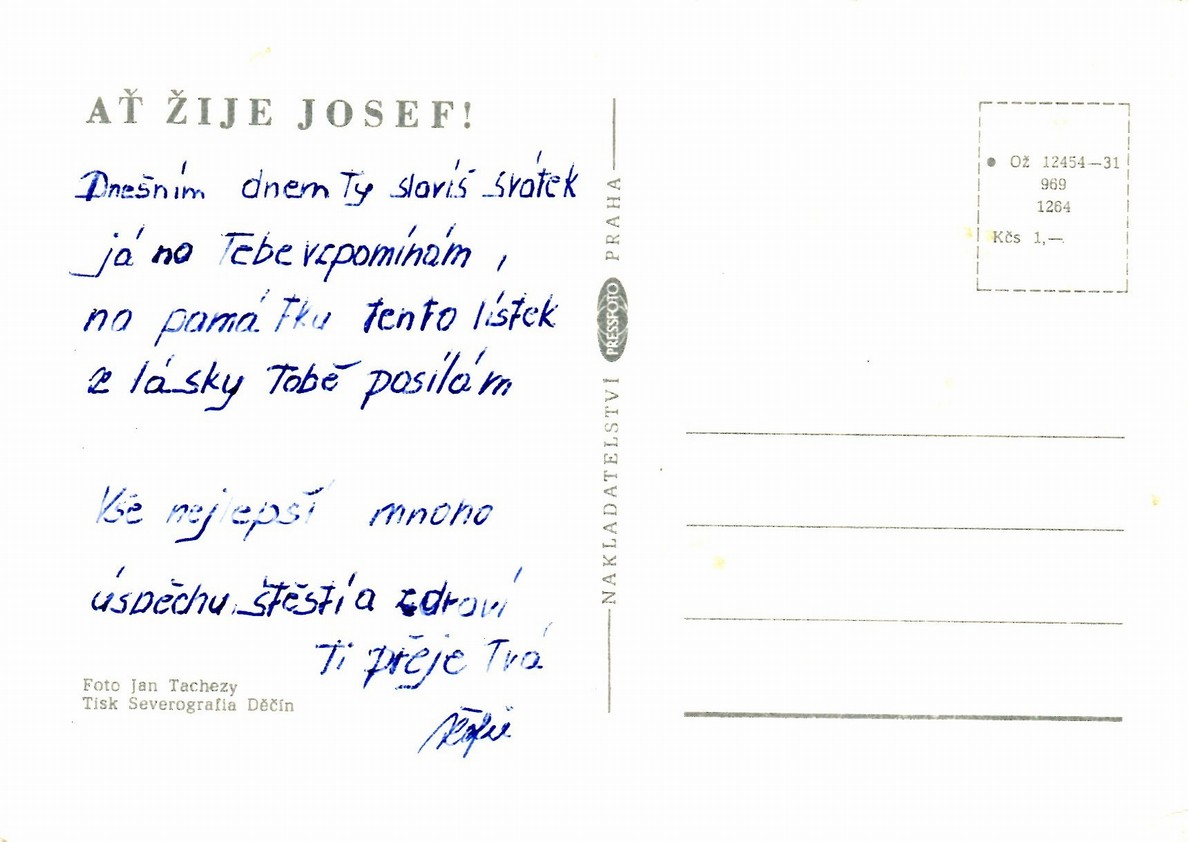 AŤ ŽIJE JOSEF!
Dnešním dnem Ty slavíš svátek
já na Tebe vzpomínám,
na památku tento lístek
z lásky Tobě posílám
Vše nejlepší mnoho
úspěchu, štěstí a zdraví
Ti přeje Tvá
Foto Jan Tachezy
Tisk Severografia Děčín
NAKLADATELSTVÍ PRESSFOTO PRAHA
● Ož 12454—31
969
1264
Kčs 1,—